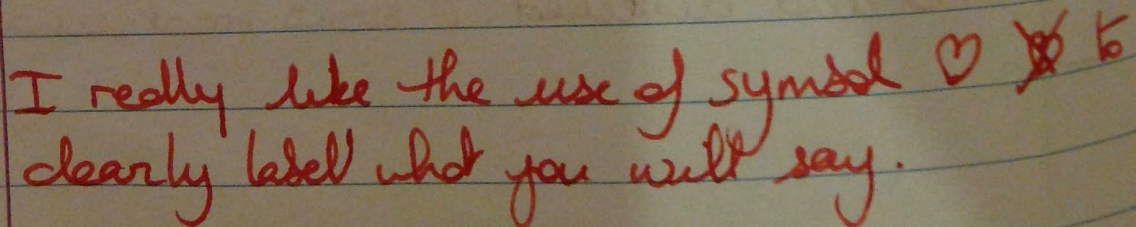 I really like the use of symbol ♡ to
clearly label what you will say.